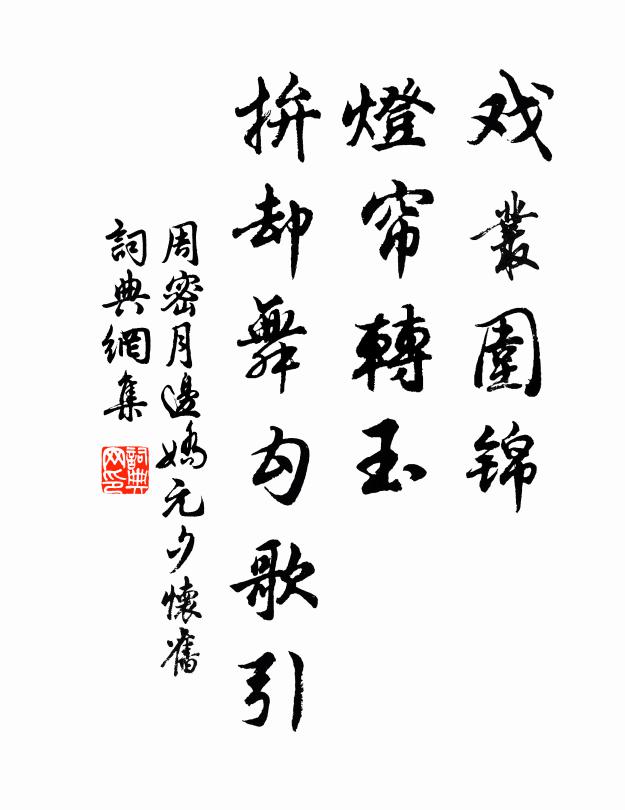 戏叢圍锦
燈帘轉玉
拚却舞勾歌引
周密月邊嬌元夕懷舊
詞典網集
詞典网印